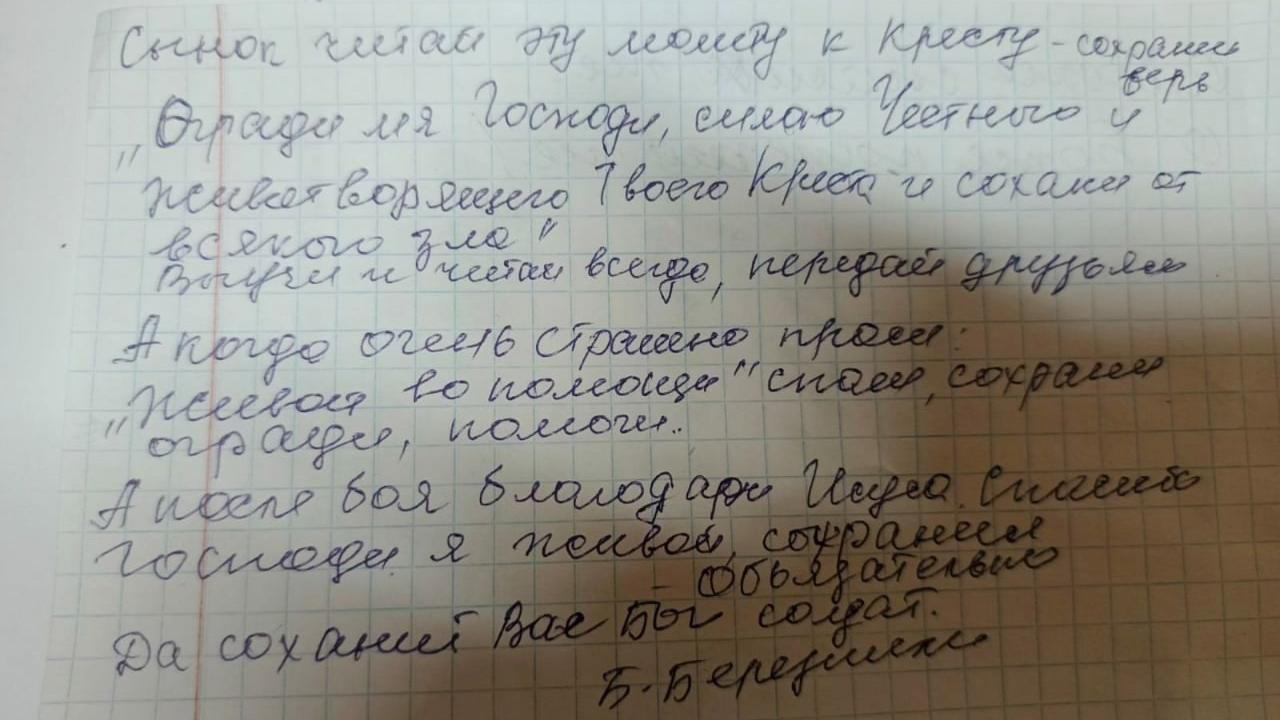 Сынок читай эту молитву к Кресту - сохранит
верь
„Огради мя Господи, силою Честного и
животворящего Твоего Креста и сохани от
всякого зла"
Выучи и читай всегда, передай друзьям
А когда очень страшно проси:
„Живой во помощи" спаси, сохрани
огради, помоги..
А после боя благодари Исуса. Спасибо
Господи я живой, сохранил
- Обьязательно
Да соханит Вас Бог солдат.
Б. Березники